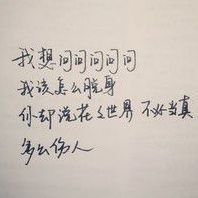 我想问问问问问
我该怎么脱身
你却说花花世界 不必当真
多么伤人